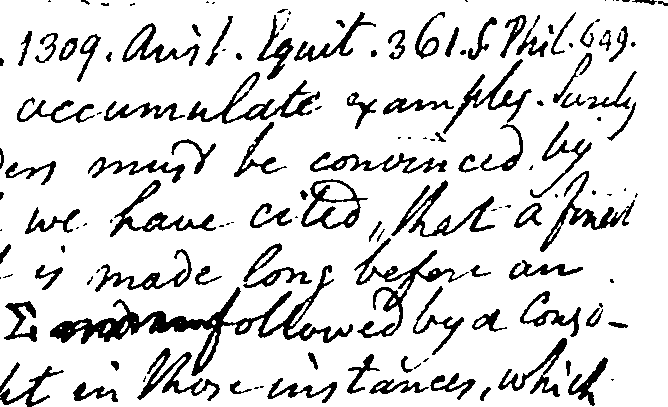 . 1309. Arist. Equit. 361. S. Phil. 649.
accumulate examples. Surely
ders must be convinced by
we have cited, that a final
t is made long before an
Σ followed by a Conso-
ht in those instances, which